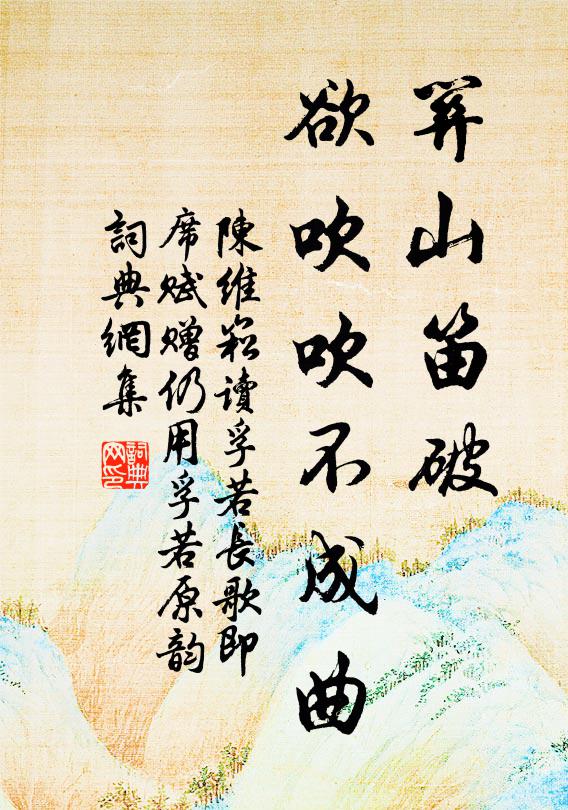 笄山笛破
欲吹吹不成曲
陳維崧讀孚若長歌即
席賦贈仍用孚若原韵
詞典網集
詞典
网印